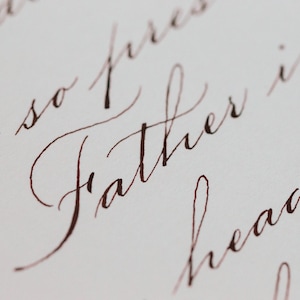 so pres
Father i
head